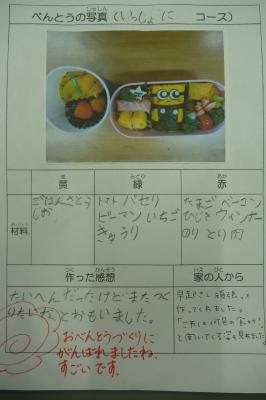 べんとうの写真(いっしょに コース)
しゃしん
黄 緑 赤
き みどり あか
材料
ざいりょう
ごはん さとう
しお
トマト パセリ
ピーマン いちご
きゅうり
たまご ベーコン
ひじき ウィンナー
のり とり肉
作った感想
つく かんそう
家の人から
いえ ひと
たいへんだったけどまたつく
りたいなとおもいました。
おべんとうづくりに
がんばれましたね。
すごいです。
早起きし 頑張って
作ってくれました。
「これは何色の食材?」
と聞いてくる姿も見せました